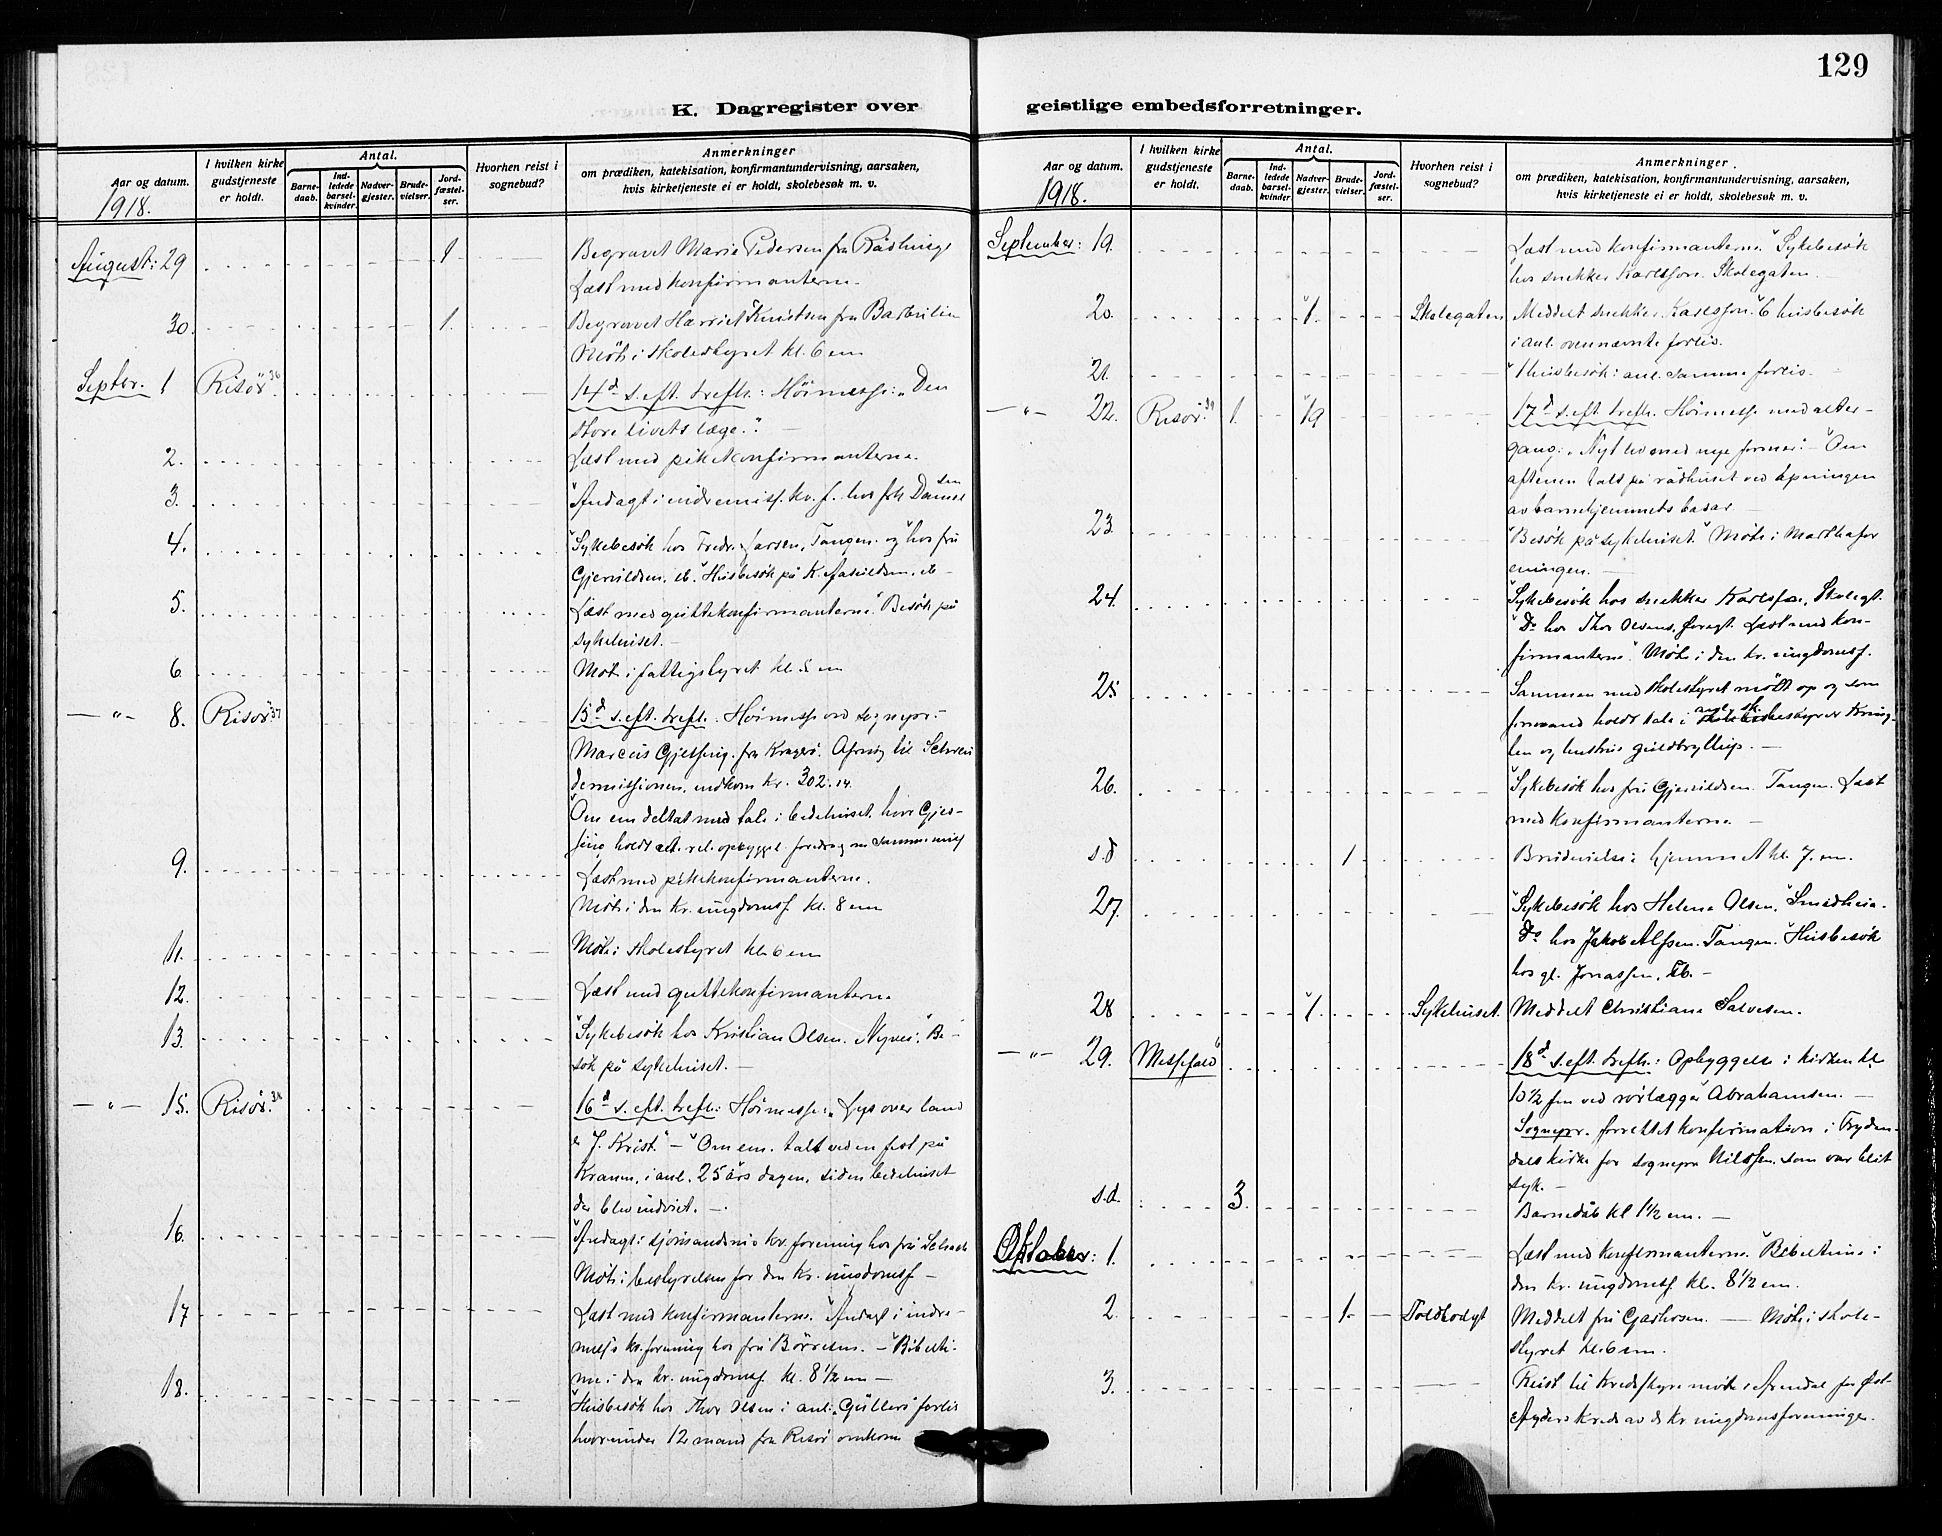 129
K. Dagregister over
Aar og datum.
I hvilken kirke gudstjeneste er holdt.
Antal.
Barnedaab.
Indledede barselkvinder.
Nadvergjester.
Brudevielser.
Jordfæstelser.
Hvorhen reist i sognebud?
Anmerkninger
om prædiken, katekisation, konfirmantundervisning, aarsaken,
hvis kirketjeneste ei er holdt, skolebesøk m. v.
1918.
August: 29 1 Begravet Marie Pedersen fra
Læst med konfirmanterne.
30. 1. Begravet Harriet Knudsen fra
Møte i skolestyret kl. 6 em
Septbr. 1 Risør 36 14d s. eft. trefh.: Høimesse: "Den
store livets læge." —
2. Læst med pikekonfirmanterne.
3. Andagt i indremisj. kv. f. hos frk
4. Sykebesøk hos Fredr. Larsen, Tangen. og hos fru
Gjervildsen, Husbesøk på
5. Læst med guttekonfirmanterne. Besøk på
sykehuset. —
6. Møte i fattigstyret kl. em
— " — 8. Risør 37 15d s. eft. trefh.: Høimesse ved sognepr.
Marcus Gjessing fra Kragerø.
indkom kr. 302.14.
Om em deltat med tale i bedehuset, hvor Gjes-
sing holdt
9. Læst med pikekonfirmanterne.
Møte i den kr. ungdomsf. kl. 8 em
11. Møte i skolestyret kl. 6 em
12. Læst med guttekonfirmanterne
13. Sykebesøk hos Kristian Olsen. Be-
søk på sykehuset. —
— " — 15. Risør. 38 16d s. eft. trefh.: Høimesse: "Lys over land
er J. Krist" — Om em. talt ved en fest på
Kranen, i anl. 25 års dagen, siden bedehuset
der blev indviet. —
16. Andagt i sjømandsmis kv. forening hos fru
Møte i bestyrelsen for den kr. ungdomsf —
17 Læst med konfirmanterne. Andagt i indre-
kv. forening hos fru — Bibelti-
me i den kr. ungdomsf. kl. 8 1/2 em —
18. Husbesøk hos Thor Olsen i anl. "Gullers" forlis
hvorunder 12 mand fra Risør omkom
geistlige embedsforretninger.
Aar og datum.
I hvilken kirke gudstjeneste er holdt.
Antal.
Barnedaab.
Indledede barselkvinder
Nadvergjester.
Brudevielser.
Jordfæstelser.
Hvorhen reist i sognebud?
Anmerkninger.
om prædiken, katekisation, konfirmantundervisning, aarsaken,
hvis kirketjeneste ei er holdt, skolebesøk m. v.
1918.
September: 19. Læst med konfirmanterne. Sykebesøk
hos snekker Karlsson. Skolegaten. —
20. 1. Skolegaten Meddelt snekker Karlsson. 6 husbesøk
i anl. ovennævnte forlis.
21. 1 husbesøk i anl. samme forlis. —
— " — 22. Risør. 39 1. 19 17d s. eft. trefh. Høimesse med alter-
gang: "Nyt liv med nye former." — Om
aftenen talt på rådhuset ved åpningen
av barnehjemmets basar. —
23. Besøk på sykehuset. Møte i Marthafor
eningen. —
24. Sykebesøk hos snekker Karlsson, Skolegt.
Do hos Thor Olsens, Læst med kon-
firmanterne. Møte i den kr. ungdomsf.
25 Sammen med skolestyret møtt op og som
formand holdt tale i
og hustrus guldbryllup. —
26. Sykebesøk hos fru Gjervildsen. Tangen. Læst
med konfirmanterne —
s.d 1 Brudevielse i hjemmet kl. 7. em.
27. Sykebesøk hos Helene Olsen,
Do hos Jakob Alfsen. Tangen. Husbesøk
hos gl. Jonassen, —
28 1. Sykehuset. Meddelt Christiane Salvesen.
— " — 29. Messefald 18d s. eft. trefh.: Opbyggelse i kirken kl
10 1/2 fm ved rørlægger Abrahamsen. —
Sognepr. forrettet konfirmation i Fryden-
dals kirke for sognepr Nilssen, som var blit
syk. —
s.d. 3. Barnedåb kl 1 1/2 em. —
Oktober: 1. Læst med konfirmanterne. Bibeltime i
den kr. ungdomsf. kl. 8 1/2 em.
2. 1. Meddelt fru — Møte i skole-
styret kl. 6 em.
3. Reist til kredsstyremøte i Arendal for Øst-
Agders kreds av de kr ungdomsforeninger.